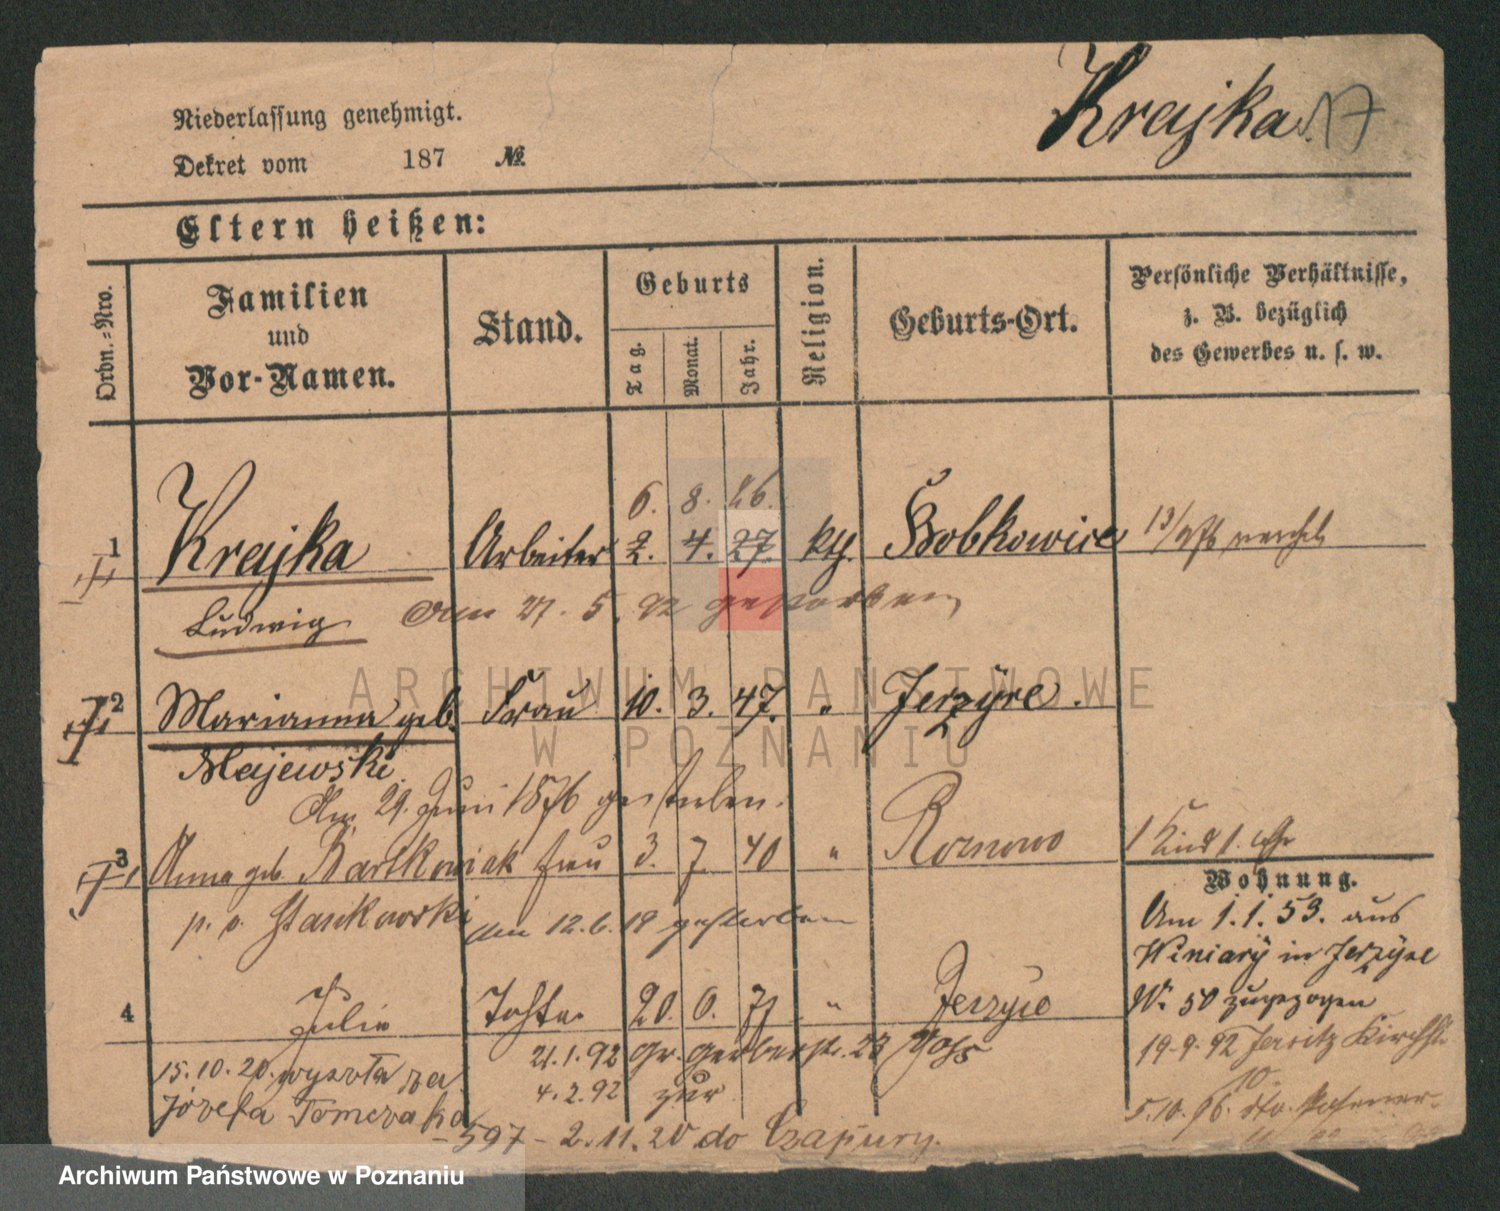 Krajka 17
Niederlassung genehmigt.
Dekret vom 187 №
Eltern heißen:
Ordn.-Nro.
Familien
und
Vor-Namen.
Stand.
Geburts
Tag.
Monat.
Jahr.
Religion.
Geburts-Ort.
Persönliche Verhältnisse,
z. B. bezüglich
des Gewerbes u. s. w.
6. 8. 26.
1 Krajka Arbeiter 2. 4. 27. kth. Bobkowice
Ludwig Am 27. 5. 92 gestorben
2 Marianna geb. Frau 10. 3. 47. " Jerzyce.
Majewski
Am 29. Juni 1876 gestorben.
3 Anna geb. Bartkowiak Frau 3. 7. 40 " Roznowo 1 Kind 1. Ehe
p. v. Stankowski Am 12.6.18 gestorben
Wohnung.
Am 1. 1. 53. aus
Winiary in Jerzyce
Nr. 50 zugezogen
4 Julie Tochter 20. 6. 71 " Jerzyce
19.9.92 Jersitz Kirchstr.
10.
21.1.92 Gr. Gerberstr. 23 Pos
4.2.92 zur
15.10.20. wyszła za
Józefa Tomczaka
5.10.96. dto. Posener-
– 597 – 2.11.20 do Czapury.
ARCHIWUM PAŃSTWOWE
W POZNANIU
Archiwum Państwowe w Poznaniu